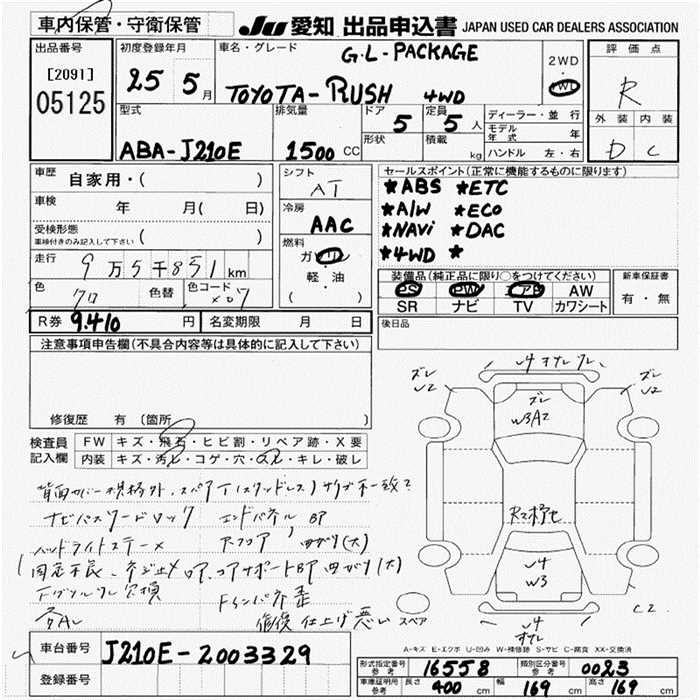 車内保管・守衛保管 JU 愛知 出品申込書 JAPAN USED CAR DEALERS ASSOCIATION
出品番号 [2091] 05125
初度登録年月 25 5月
車名・グレード G.L-PACKAGE
TOYOTA-RUSH 4WD
2WD・4WD
評価点 R
外装 内装
D C
型式 ABA-J210E
排気量 1500 CC
ドア 5 定員 5人
形状 積載 kg
ディーラー・並行
モデル年式 年
ハンドル 左・右
車歴 自家用・( )
車検 年 月( 日)
受検形態 車検付きのみ記入して下さい ( )
走行 9万5千851km
色 クロ 色替 色コード X07
シフト AT
冷房 AAC
燃料 ガソリン
軽・油
( )
セールスポイント(正常に機能するものに限ります)
★ABS ★ETC
★A/W ★ECO
★NAVi ★DAC
★4WD ★
装備品(純正品に限り○をつけてください)
PS PW エアB AW
SR ナビ TV カワシート
新車保証書
有・無
R券 9.410 円 名変期限 月 日
後日品
注意事項申告欄(不具合内容等は具体的に記入して下さい)
修復歴 有 (箇所
検査員 FW キズ・飛石・ヒビ割・リペア跡・X要
記入欄 内装 キズ・汚レ・コゲ・穴・スレ・キレ・破レ
背面カバー規格外、スペアT(スタッドレス)サイズ不一致?
ナビパスワードロック エンドパネル BP
ヘッドライトステーメ 曲がり(大)
コアサポートBP 曲がり(大)
Fインパネ歪
修復 仕上げ悪い
スペア
ズレ U2
U4
ズレ
W3 A2
ズレ U2
U4
W3
C2
U4
A-キズ E-エクボ U-凹み W-補修跡 S-サビ C-腐食 XX-交換済
車台番号 J210E-2003329
登録番号
形式指定番号 参考 16558 類別区分番号 参考 0023
車庫証明用 参考 長さ 400 cm 幅 169 cm 高さ 169 cm